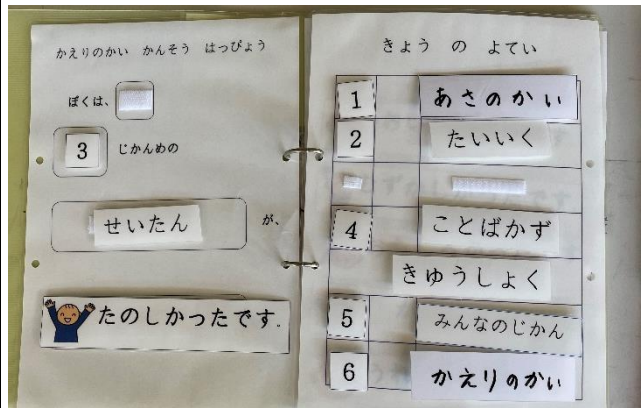 かえりのかい かんそう はっぴょう
ぼくは、
3 じかんめの
せいたん が、
たのしかったです。
きょう の よてい
1 あさのかい
2 たいいく
4 ことばかず
きゅうしょく
5 みんなのじかん
6 かえりのかい